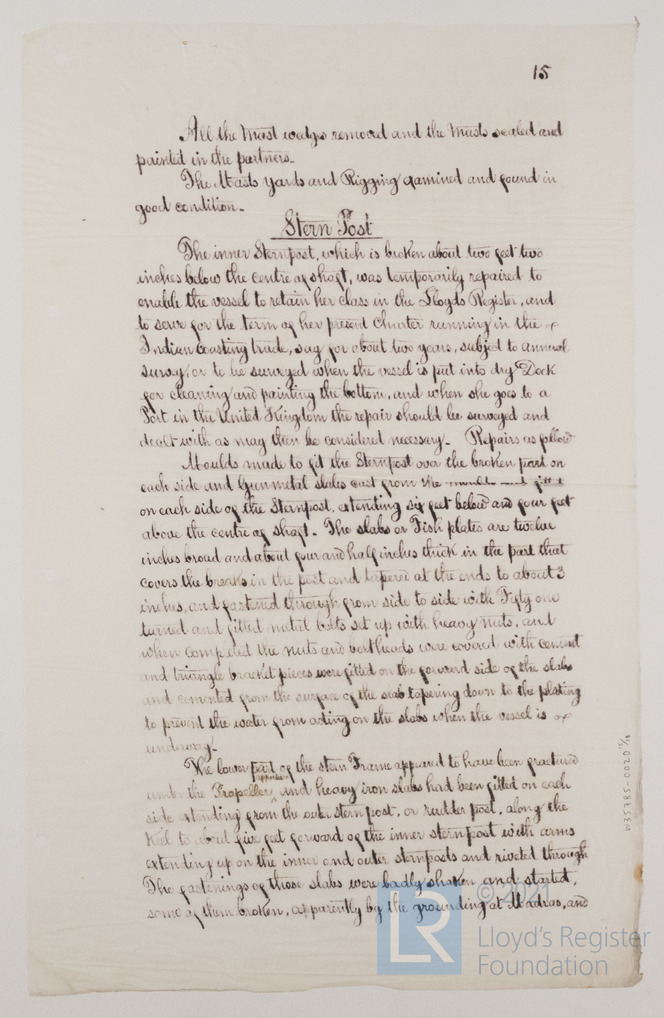 15
All the Mast wedges removed and the Masts sealed and
painted in the partners.
The Masts Yards and Rigging examined and found in
good condition.
Stern Post
The inner Sternpost, which is broken about two feet two
inches below the centre of shaft, was temporarily repaired to
enable the vessel to retain her class in the Lloyds Register, and
to serve for the term of her present Charter running in the
Indian coasting trade, say for about two years, subject to annual
survey, or to be surveyed when the vessel is put into dry Dock
for cleaning and painting the bottom, and when she goes to a
Port in the United Kingdom the repair should be surveyed and
dealt with as may then be considered necessary. Repairs as follow
Moulds made to fit the Sternpost over the broken part on
each side and Gunmetal slabs cast from the moulds and fitted
on each side of the Sternpost, extending six feet below and four feet
above the centre of shaft. The slabs or Fish plates are twelve
inches broad and about four and half inches thick in the part that
covers the breaks in the post and tapered at the ends to about 3
inches, and fastened through from side to side with Fifty one
turned and fitted metal bolts set up with heavy nuts, and
when completed the nuts and boltheads were covered with cement
and triangle bracket pieces were fitted on the forward side of the slabs
and cemented from the surface of the slab tapering down to the plating
to prevent the water from acting on the slabs when the vessel is
underway.
The lower part of the stern Frame appeared to have been fractured
under the Propeller, and heavy iron slabs had been fitted on each
side extending from the outer stern post, or rudder post, along the
Keel to about five feet forward of the inner sternpost with arms
extending up on the inner and outer sternposts and riveted through
The fastenings of those slabs were badly shaken and started,
some of them broken, apparently by the grounding at Madras, and
W35785-0020 15/19
© 2021
LR
Lloyd's Register
Foundation